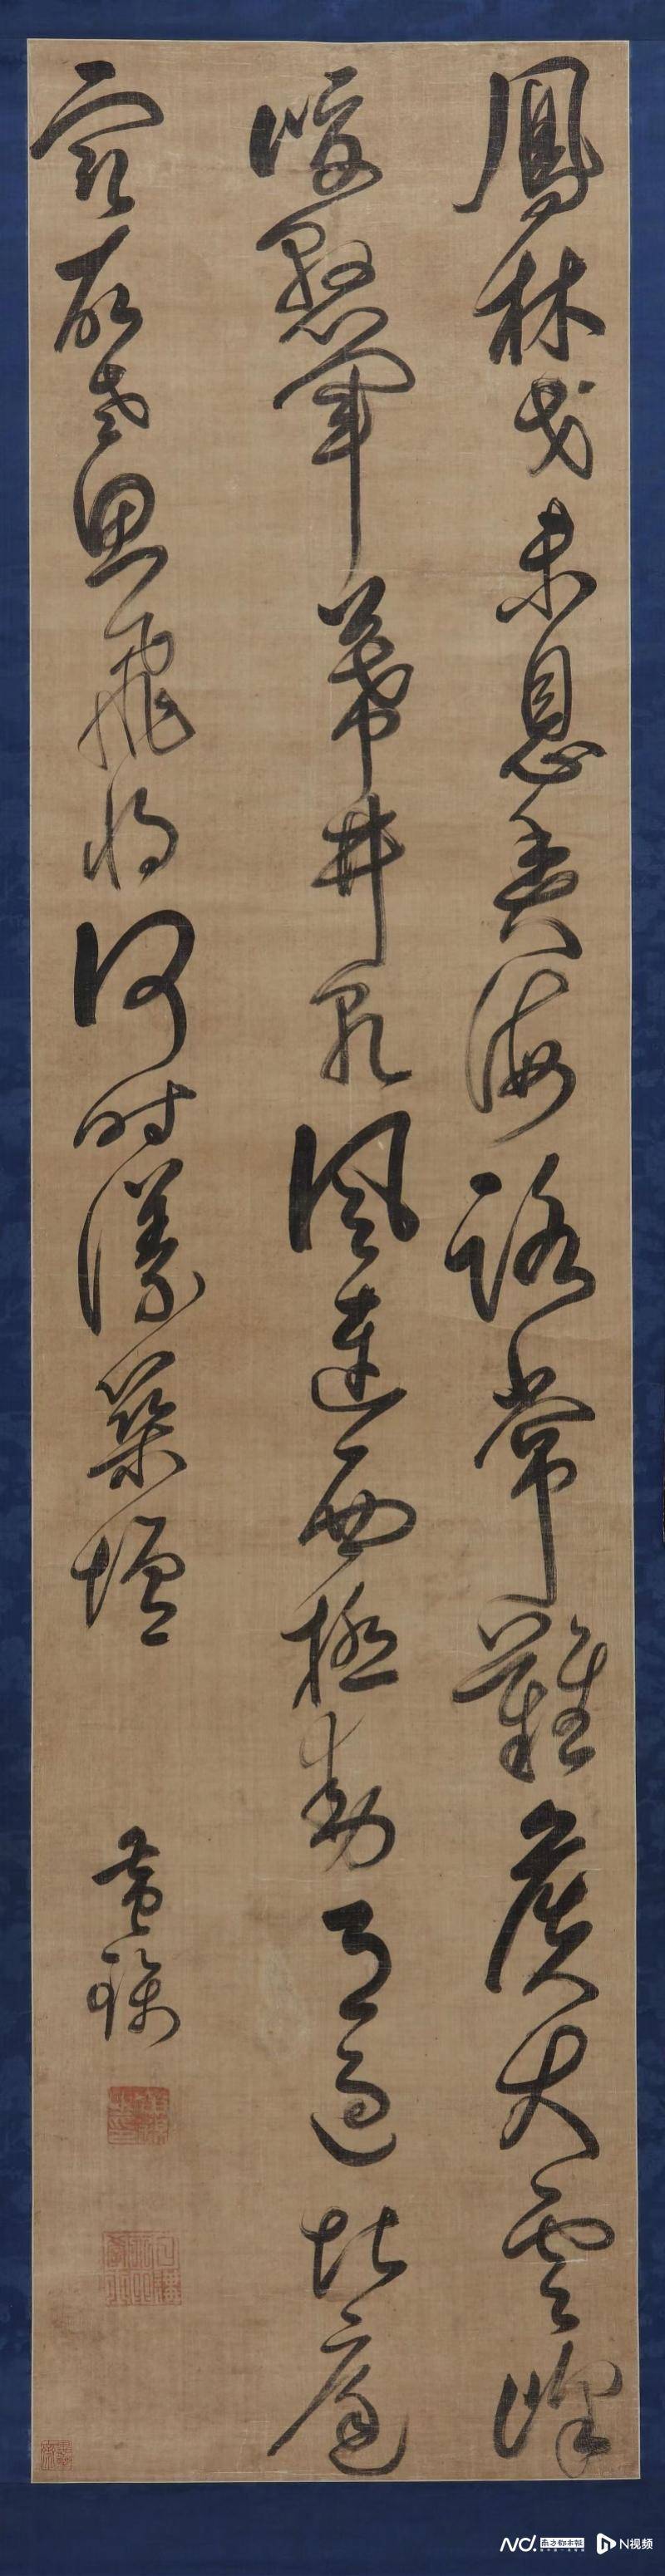 鳳林戈未息魚海路常難候火雲峰
峻懸軍幕井乾風連西極動月過北庭
寒故老思飛將何時議築壇
黃錦
南方都市报
N视频